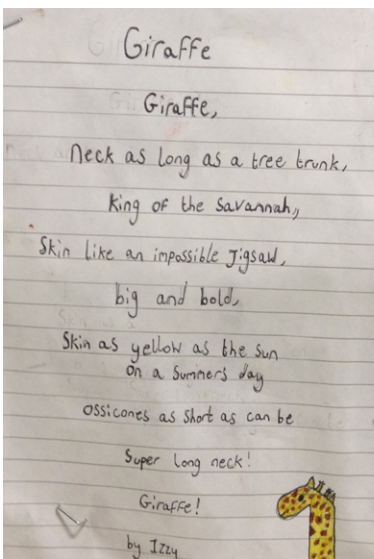 Giraffe
Giraffe,
neck as long as a tree trunk,
king of the Savannah,
Skin like an impossible Jigsaw,
big and bold,
Skin as yellow as the sun
on a summers day
ossicones as short as can be
Super long neck!
Giraffe!
by Izzy